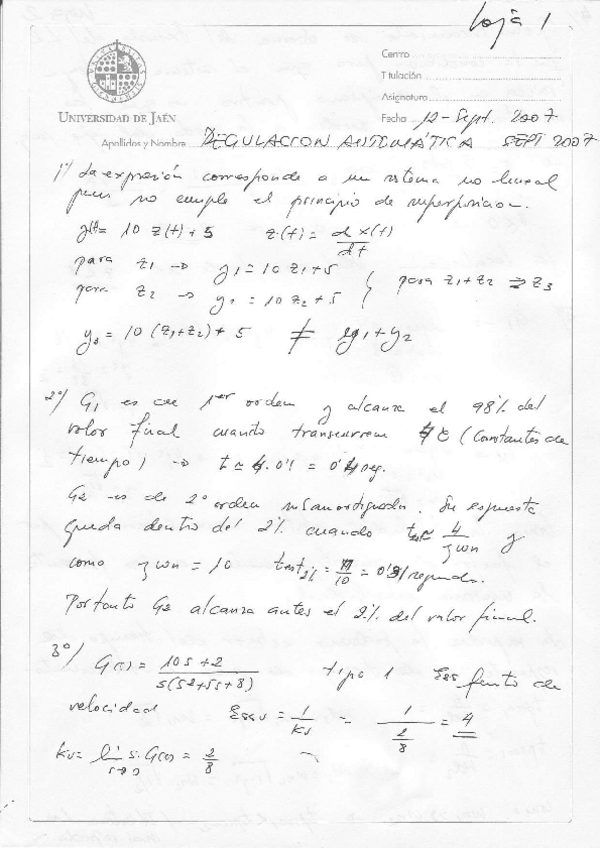 Hoja 1
Centro
Titulación
Asignatura
UNIVERSIDAD DE JAÉN
Fecha 12 - Sept. 2007
Apellidos y Nombre REGULACION AUTOMÁTICA SEPT 2007
1º) La expresión corresponde a un sistema no lineal
pues no cumple el principio de superposicion.
y(t) = 10 z(t) + 5 z(t) = dx(t)/dt
para z1 → y1 = 10 z1 + 5
para z2 → y2 = 10 z2 + 5 } para z1+z2 → z3
y3 = 10 (z1+z2) + 5 ≠ y1 + y2
2º) G1 es de 1er orden y alcanza el 98% del
valor final cuando transcurren 4 τ (Constantes de
tiempo) → t = 4·0'1 = 0'4 seg.
G2 es de 2º orden subamortiguado. Su respuesta
queda dentro del 2% cuando ≈ 4/ζωn y
como ζωn = 10 /10 = segundos.
Por tanto G2 alcanza antes el 2% del valor final.
3º) G(s) = 10s+2 / s(s2+5s+8) tipo 1 Ess frente de
velocidad Essv = 1/Kv = 1/(2/8) = 4
Kv = lim s→0 s·G(s) = 2/8